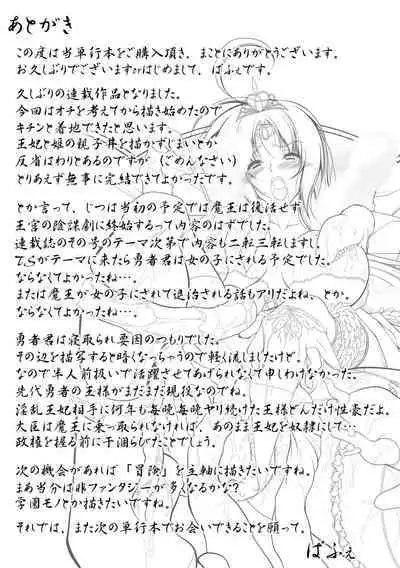 あとがき
この度は当単行本をご購入頂き、まことにありがとうございます。
お久しぶりでございますorはじめまして、ばふぇです。
久しぶりの連載作品となりました。
今回はオチを考えてから描き始めたので
キチンと着地できたと思います。
王妃と姫の親子丼を描かずじまいとか
反省はわりとあるのですが（ごめんなさい）
とりあえず無事に完結できてよかったです。
とか言って、じつは当初の予定では魔王は復活せず
王宮の陰謀劇に終始するって内容のはずでした。
連載誌のその号のテーマ次第で内容も二転三転しますし。
T.Sがテーマに来たら勇者君は女の子にされる予定でした。
ならなくてよかったね…。
または魔王が女の子にされて退治される話もアリだよね、とか。
ならなくてよかったね…。
勇者君は寝取られ要因のつもりでした。
その辺を描写すると暗くなっちゃうので軽く流しましたけど。
なので半人前扱いで活躍させてあげられなくて申しわけなかった。
先代勇者の王様がまだまだ現役なのでね。
淫乱王妃相手に何年も毎晩毎晩ヤリ続けた王様どんだけ性豪だよ。
大臣は魔王に乗っ取られなければ、あのまま王妃を奴隷にして…
政権を握る前に干涸らびたことでしょう。
次の機会があれば「冒険」を主軸に描きたいですね。
まあ当分は非ファンタジーが多くなるかな？
学園モノとか描きたいですね。
それでは、また次の単行本でお会いできることを願って。
ばふぇ